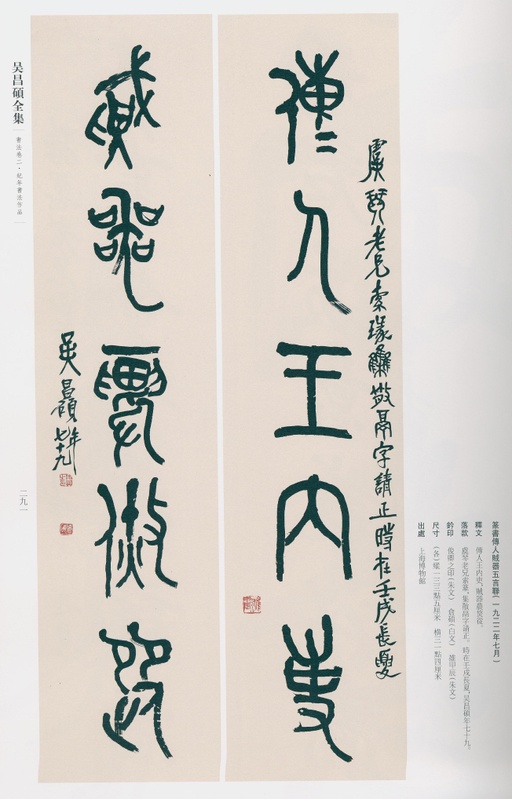 篆書傳人賊器五言聯(一九二二年七月)
釋文 傳人王内吏,賊器農
落款 虞琴老兄索篆,集散鬲字請正。時在壬戌長夏,吴昌碩年七十九。
鈐印 俊卿之印(朱文) 倉碩(白文) 雄甲辰(朱文)
尺寸 (各)縱一三三點五厘米 横三一點四厘米
出處 上海博物館
虞琴老兄索篆集散鬲字請正時在壬戌長夏
傳人王内吏
賊器農
吴昌碩年七十九
吴昌碩全集
書法卷二·紀年書法作品
二九一